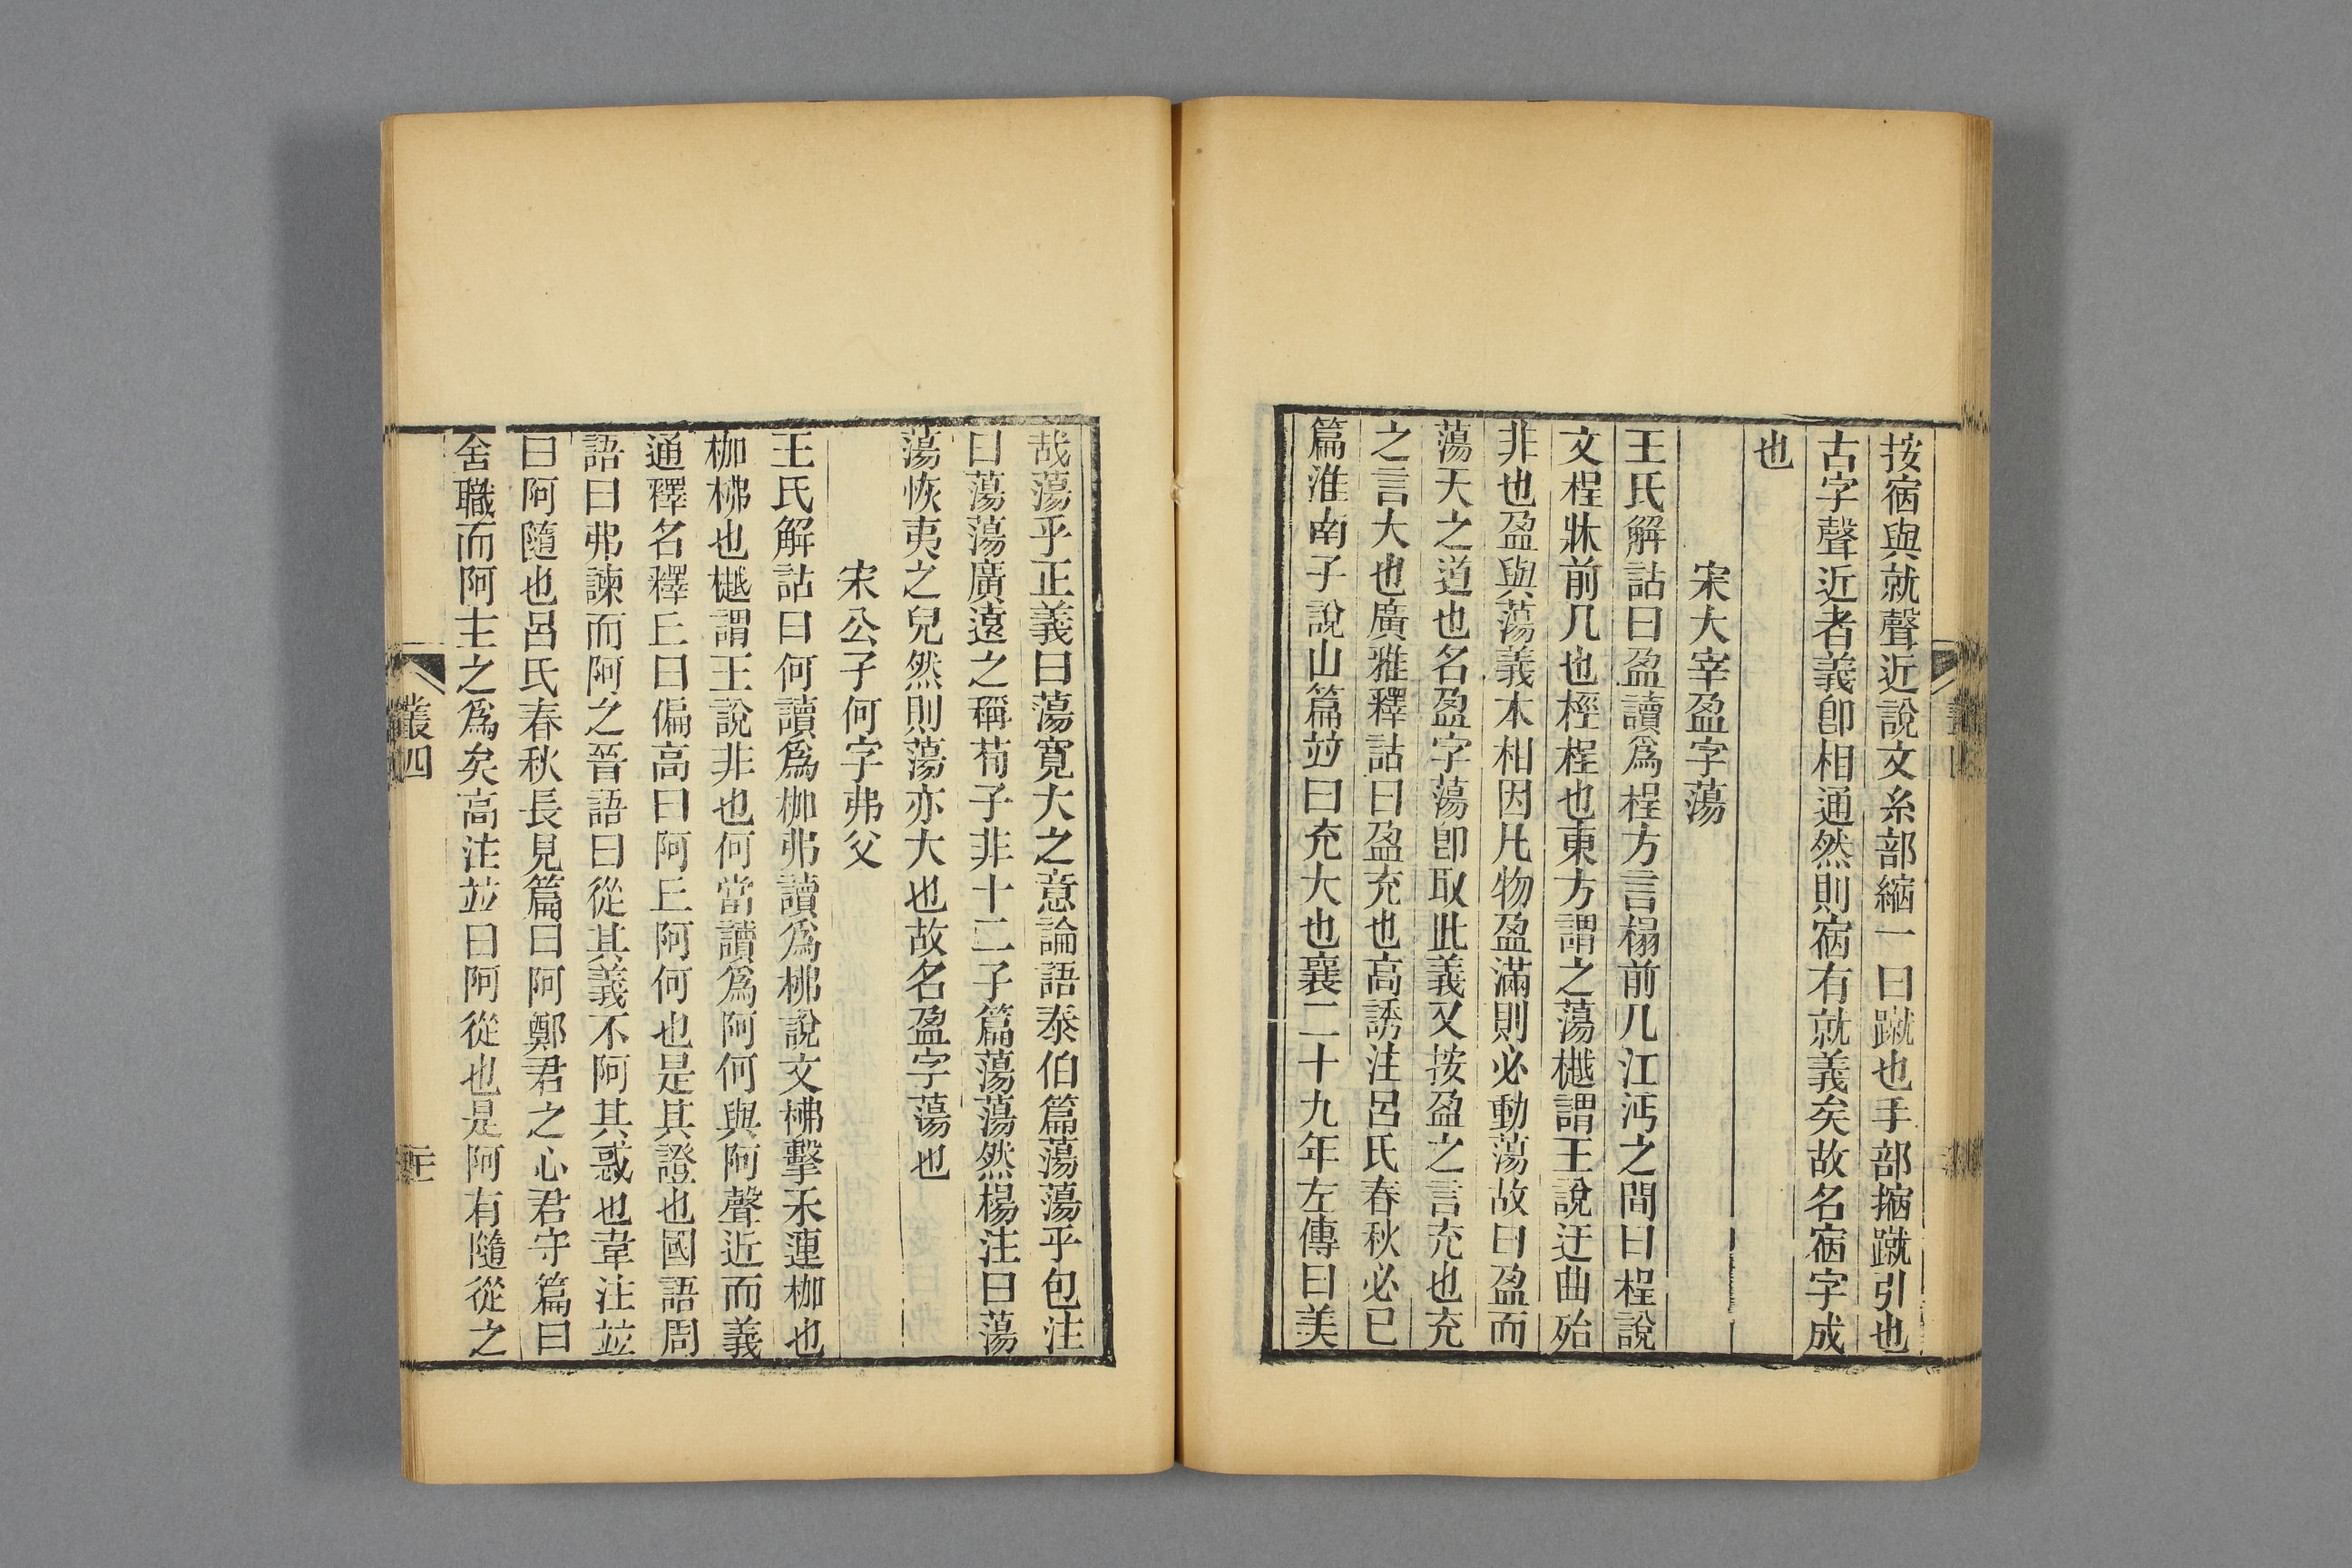 按宿與就聲近說文糸部縮一曰蹴也手部摍蹴引也
古字聲近者義卽相通然則宿有就義矣故名宿字成
也
宋大宰盈字蕩
王氏解詁曰盈讀爲桯方言榻前几江沔之閒曰桯說
文桯牀前几也桱桯也東方謂之蕩樾謂王說迂曲殆
非也盈與蕩義本相因凡物盈滿則必動蕩故曰盈而
蕩天之道也名盈字蕩卽取此義又按盈之言充也充
之言大也廣雅釋詁曰盈充也高誘注呂氏春秋必已
篇淮南子說山篇並曰充大也襄二十九年左傳曰美
哉蕩乎正義曰蕩寬大之意論語泰伯篇蕩蕩乎包注
曰蕩蕩廣遠之稱荀子非十二子篇蕩蕩然楊注曰蕩
蕩恢夷之皃然則蕩亦大也故名盈字蕩也
宋公子何字弗父
王氏解詁曰何讀爲枷弗讀爲柫說文柫擊禾連枷也
枷柫也樾謂王說非也何當讀爲阿何與阿聲近而義
通釋名釋丘曰偏高曰阿丘阿何也是其證也國語周
語曰弗諫而阿之晉語曰從其義不阿其惑也韋注並
曰阿隨也呂氏春秋長見篇曰阿鄭君之心君守篇曰
舍職而阿主之爲矣高注並曰阿從也是阿有隨從之
叢四